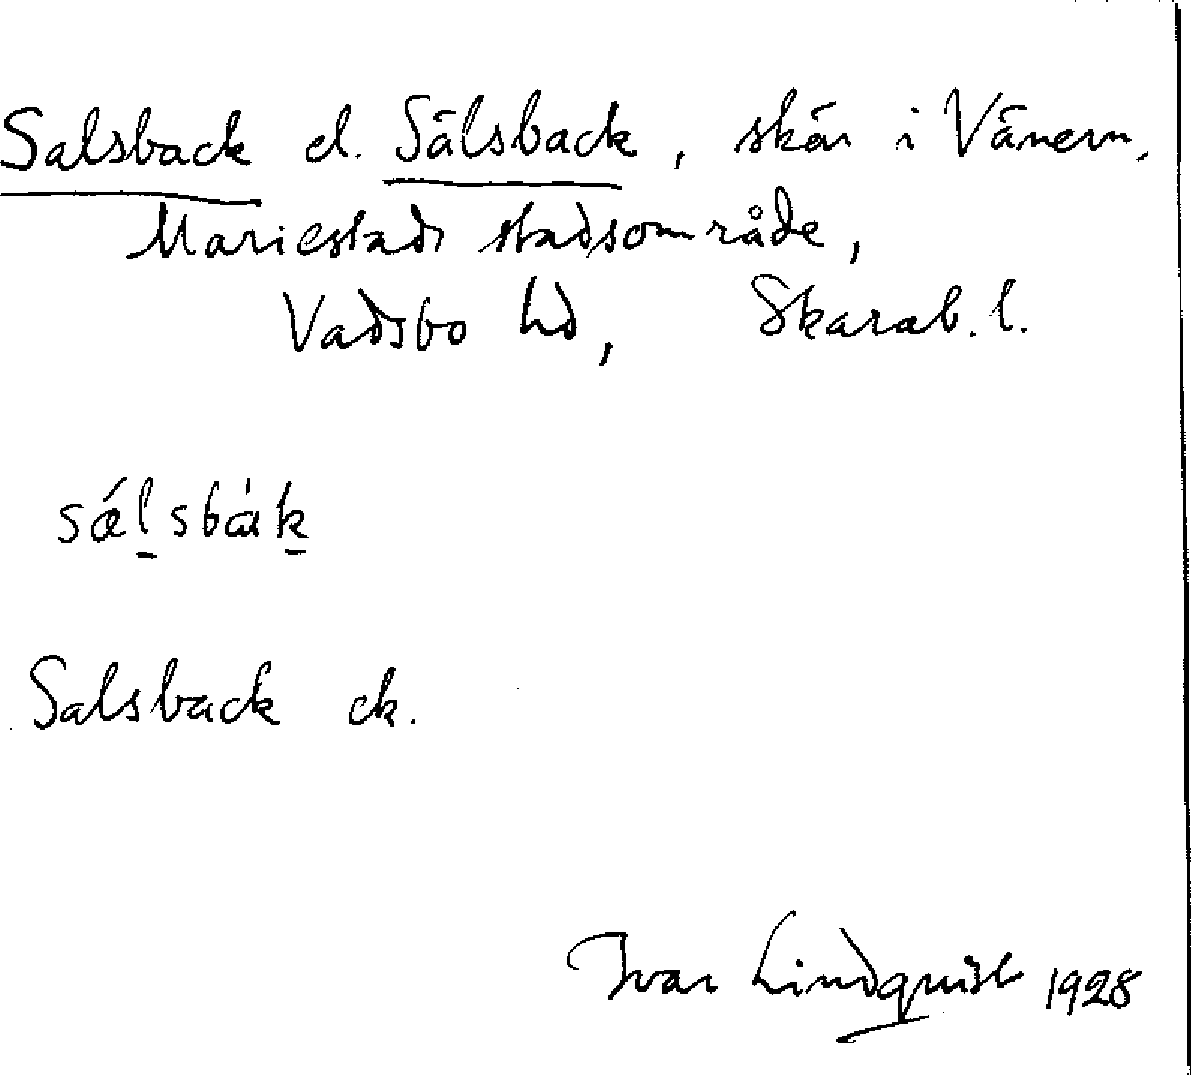 Salsback el. Sälsback, skär i Vänern,
Mariestads stadsområde,
Vadsbo hd, Skarab. l.
sǽlsbàk
Salsback ek.
Ivar Lindquist 1928